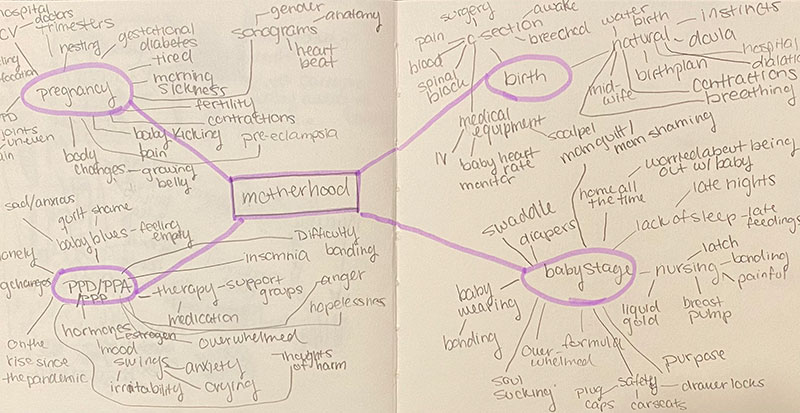 hospital
doctors
trimesters
nesting
gestational
diabetes
tired
morning
sickness
pregnancy
fertility
contractions
baby kicking
pain
pre-eclampsia
body
changes - growing
belly
gender
anatomy
sonograms
heart
beat
motherhood
sad/anxious
guilt shame
baby blues - feeling
empty
Difficulty
bonding
insomnia
PPD/PPA
/PPP
therapy - support
groups
anger
medication
hopelessness
hormones
estrogen
overwhelmed
mood
swings
anxiety
irritability
crying
thoughts
of harm
on the
rise since
the pandemic
surgery
awake
pain
c-section
breeched
blood
spinal
block
birth
medical
equipment
scalpel
IV
baby heart
rate
monitor
water
birth
instincts
natural
doula
hospital
birthplan
mid-
wife
contractions
breathing
mom guilt/
mom shaming
worried about being
out w/ baby
home all
the time
late nights
swaddle
diapers
lack of sleep - late
feedings
baby stage
nursing
latch
bonding
painful
baby
wearing
liquid
gold
breast
pump
bonding
over-
whelmed
formula
soul
sucking
purpose
plug
caps
safety
drawer locks
carseats